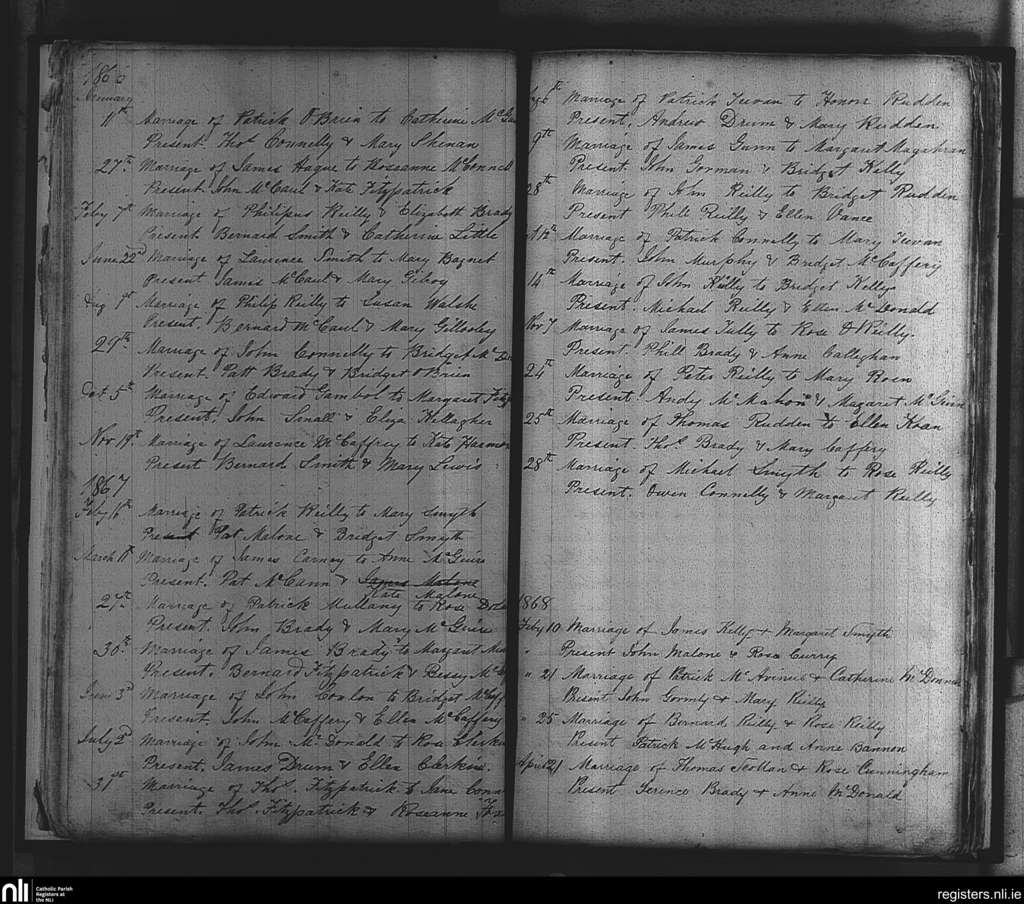 1866
January
11th Marriage of Patrick O'Brien to Catherine
Present. Thos Connelly & Mary Shenan
27th Marriage of James Hague to Roseanne McConnell
Present. John McCaul & Kate Fitzpatrick
Feby 7th Marriage of Philipus Reilly & Elizabeth Brady
Present. Bernard Smith & Catherine Little
June 22d Marriage of Lawrence Smith to Mary Bagnet
Present James McCaul & Mary Gilroy
Aug 7st Marriage of Philip Reilly to Susan Walsh
Present. Bernard McCaul & Mary Gillooley
29th Marriage of John Connelly to Bridget
Present. Patt Brady & Bridget O'Brien
Oct 5th Marriage of Edward Gambol to Margaret
Present. John Small & Eliza Kellagher
Nov 19th Marriage of Laurence McCaffrey to Kate
Present Bernard Smith & Mary Lewis
1867
Feby 16th Marriage of Patrick Reilly to Mary Smyth
Present Pat Malone & Bridget Smyth
March 11th Marriage of James Carney to Anne McGuire
Present. Pat McCann & James Malone
Kate Malone
27th Marriage of Patrick Mullany to Rose
Present. John Brady & Mary McGuire
30th Marriage of James Brady to Margaret
Present. Bernard Fitzpatrick & Bessy
June 3d Marriage of John Conlon to Bridget
Present. John McCaffery & Ellen McCaffery
July 2d Marriage of John McDonald to Rose Clerkin
Present. James Drum & Ellen Clerkin.
31st Marriage of Thos. Fitzpatrick to Jane
Present. Thos. Fitzpatrick & Roseanne
Marriage of Patrick Teevan to Honor Rudden
Present. Andrew Drum & Mary Rudden.
9th Marriage of James Gunn to Margaret Magahran
Present. John Gorman & Bridget Kelly
28th Marriage of John Reilly to Bridget Rudden
Present Phill Reilly & Ellen Vance
Marriage of Patrick Connelly to Mary Teevan
Present. John Murphy & Bridget McCaffery
14th Marriage of John Reilly to Bridget Kelly
Present. Michael Reilly & Ellen McDonald
Nov 7 Marriage of James Tully to Rose O'Reilly.
Present. Phill Brady & Anne Calleghan
24th Marriage of Peter Reilly to Mary Rosen
Present. Andy McMahon & Magaret
25th Marriage of Thomas Rudden to Ellen Khan
Present. Thos. Brady & Mary Caffery
28th Marriage of Michael Smyth to Rose Reilly
Present. Owen Connelly & Margaret Reilly
1868
Feby 10 Marriage of James Kelly & Margaret Smyth
" Present John Malone & Rose Curry
" 21 Marriage of Patrick & Catherine
Present John Gormly & Mary Reilly
" 25 Marriage of Bernard Reilly & Rose Reilly
Present Patrick McHugh and Anne Bannon
April 21 Marriage of Thomas Scollan & Rose Cunningham
Present Terence Brady & Anne McDonald
nli
Catholic Parish
Registers at
the NLI
registers.nli.ie